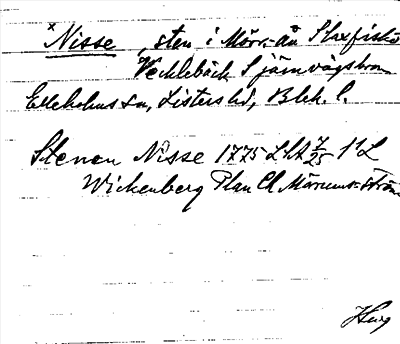 x Nisse, sten i Mörr.-ån Slaxfiske
Vekkebäck S järnvägsbron
Elleholms sn, Listers hd, Blek. l.
Stenen Nisse 1775 LSA 7/25 1:1 L
Wickenberg Plan Ch Mörrums-ström